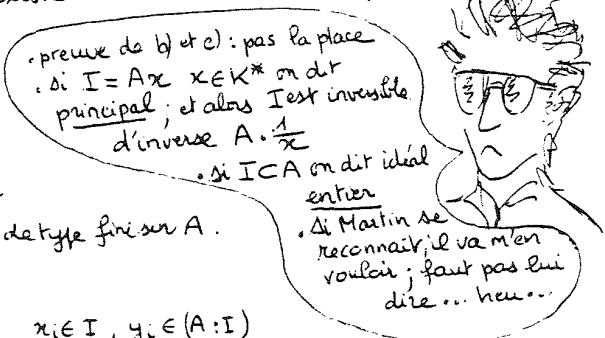 . preuve de b) et c) : pas la place
. si I = Ax x ∈ K* on dit
principal ; et alors I est inversible
d'inverse A . 1/x
. si I ⊂ A on dit idéal
entier
. Si Martin se
reconnait, il va m'en
vouloir ; faut pas lui
dire ... heu ...
de type fini sur A .
xi ∈ I , yi ∈ (A : I)